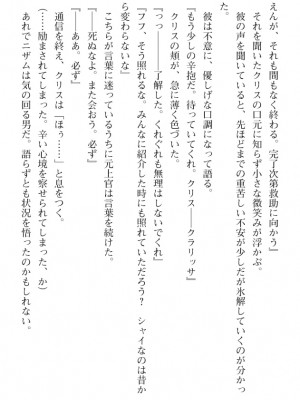 えんが、それも間もなく終わる。完了次第救助に向かう』
それを聞いたクリスの口元に知らず小さな微笑みが浮かぶ。
彼の声を聞いていると、先ほどまでの重苦しい不安が少しだが氷解していくのが分かっ
た。
彼は不意に、優しげな口調になって語る。
『もう少しの辛抱だ、待っていてくれ。クリス――クラリッサ』
クリスの頬が、急に薄く色づいた。
「っっ――了解した。くれぐれも無理はしないでくれ」
『フフ、そう照れるな。みんなに紹介した時にも照れていただろう？　シャイなのは昔か
ら変わらないな』
こちらが言葉に迷っているうちに元上官は言葉を続けた。
『――死ぬなよ。また会おう。必ず』
「――ああ。必ず」
通信を終え、クリスは「ほう……」と息をつく。
（……励まされてしまった。辛い心境を察せられてしまった、か）
あれでニザムは気の回る男だ。語らずとも状況を悟ったのかもしれない。